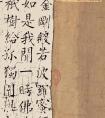 金剛般若波羅蜜
如是我聞一時佛
祇樹給孤獨園